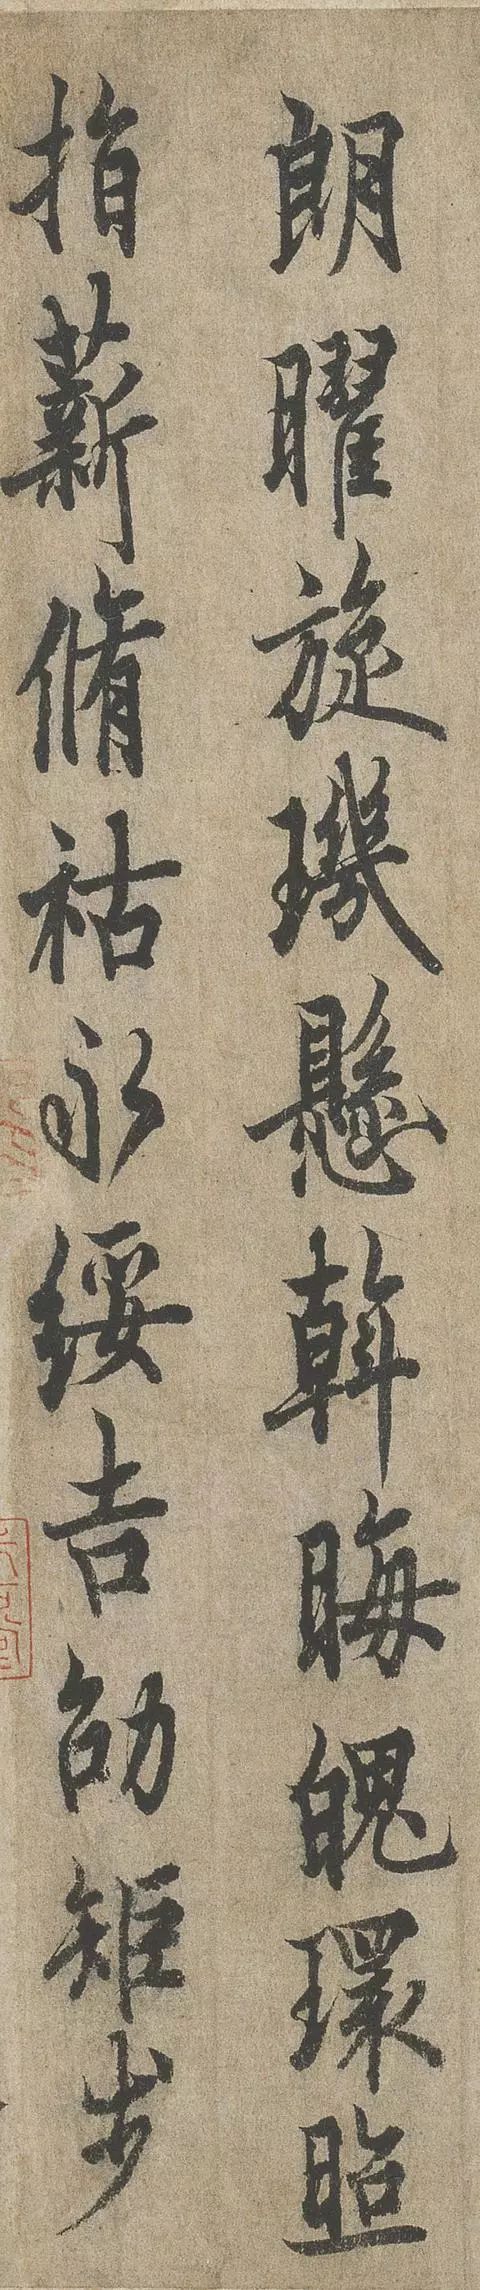 朗曜旋璣懸斡晦魄環照
指薪脩祜永綏吉劭矩步